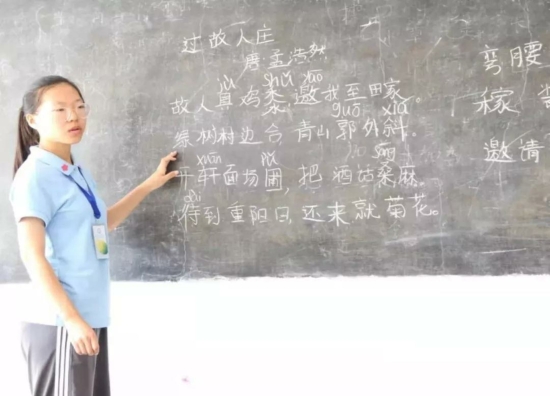 过故人庄
唐 孟浩然
jù shǔ yāo
故人具鸡黍,邀我至田家。
guō xiá
绿树村边合 青山郭外斜。
xuān pǔ sāng
开轩面场圃,把酒话桑麻。
待到重阳日,还来就菊花。
弯腰
稼
邀请